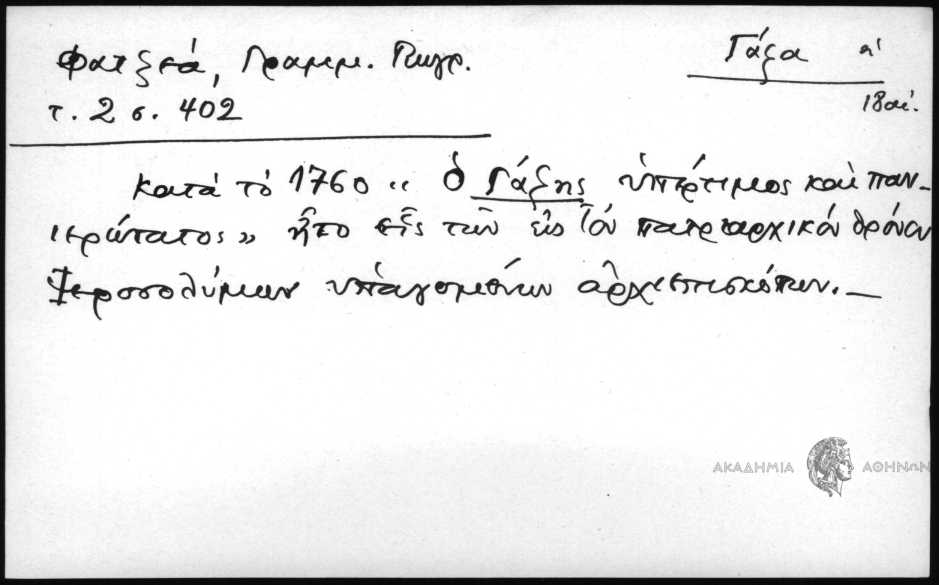 Φατζεά, Γραμμ. Γεωγρ.
τ. 2 σ. 402
Γάζα α'
18 αἰ.
Κατὰ τὸ 1760 « ὁ Γάζης ὑπέρτιμος καὶ παν-
ιερώτατος » ἦτο εἷς τῶν εἰς τὸν πατριαρχικὸν θρόνον
Ἱεροσολύμων ὑπαγομένων ἀρχιεπισκόπων. —
ΑΚΑΔΗΜΙΑ ΑΘΗΝΩΝ